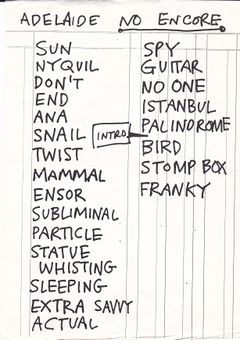 ADELAIDE NO ENCORE
SUN
NYQUIL
DON'T
END
ANA
SNAIL
TWIST
MAMMAL
ENSOR
SUBLIMINAL
PARTICLE
STATUE
WHISTING
SLEEPING
EXTRA SAVVY
ACTUAL
SPY
GUITAR
NO ONE
ISTANBUL
PALINDROME
INTRO
BIRD
STOMP BOX
FRANKY